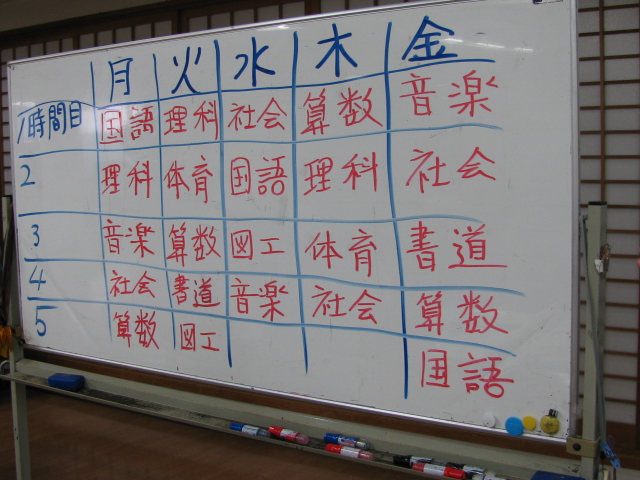 月 火 水 木 金
1時間目 国語 理科 社会 算数 音楽
2 理科 体育 国語 理科 社会
3 音楽 算数 図工 体育 書道
4 社会 書道 音楽 社会 算数
5 算数 図工 国語